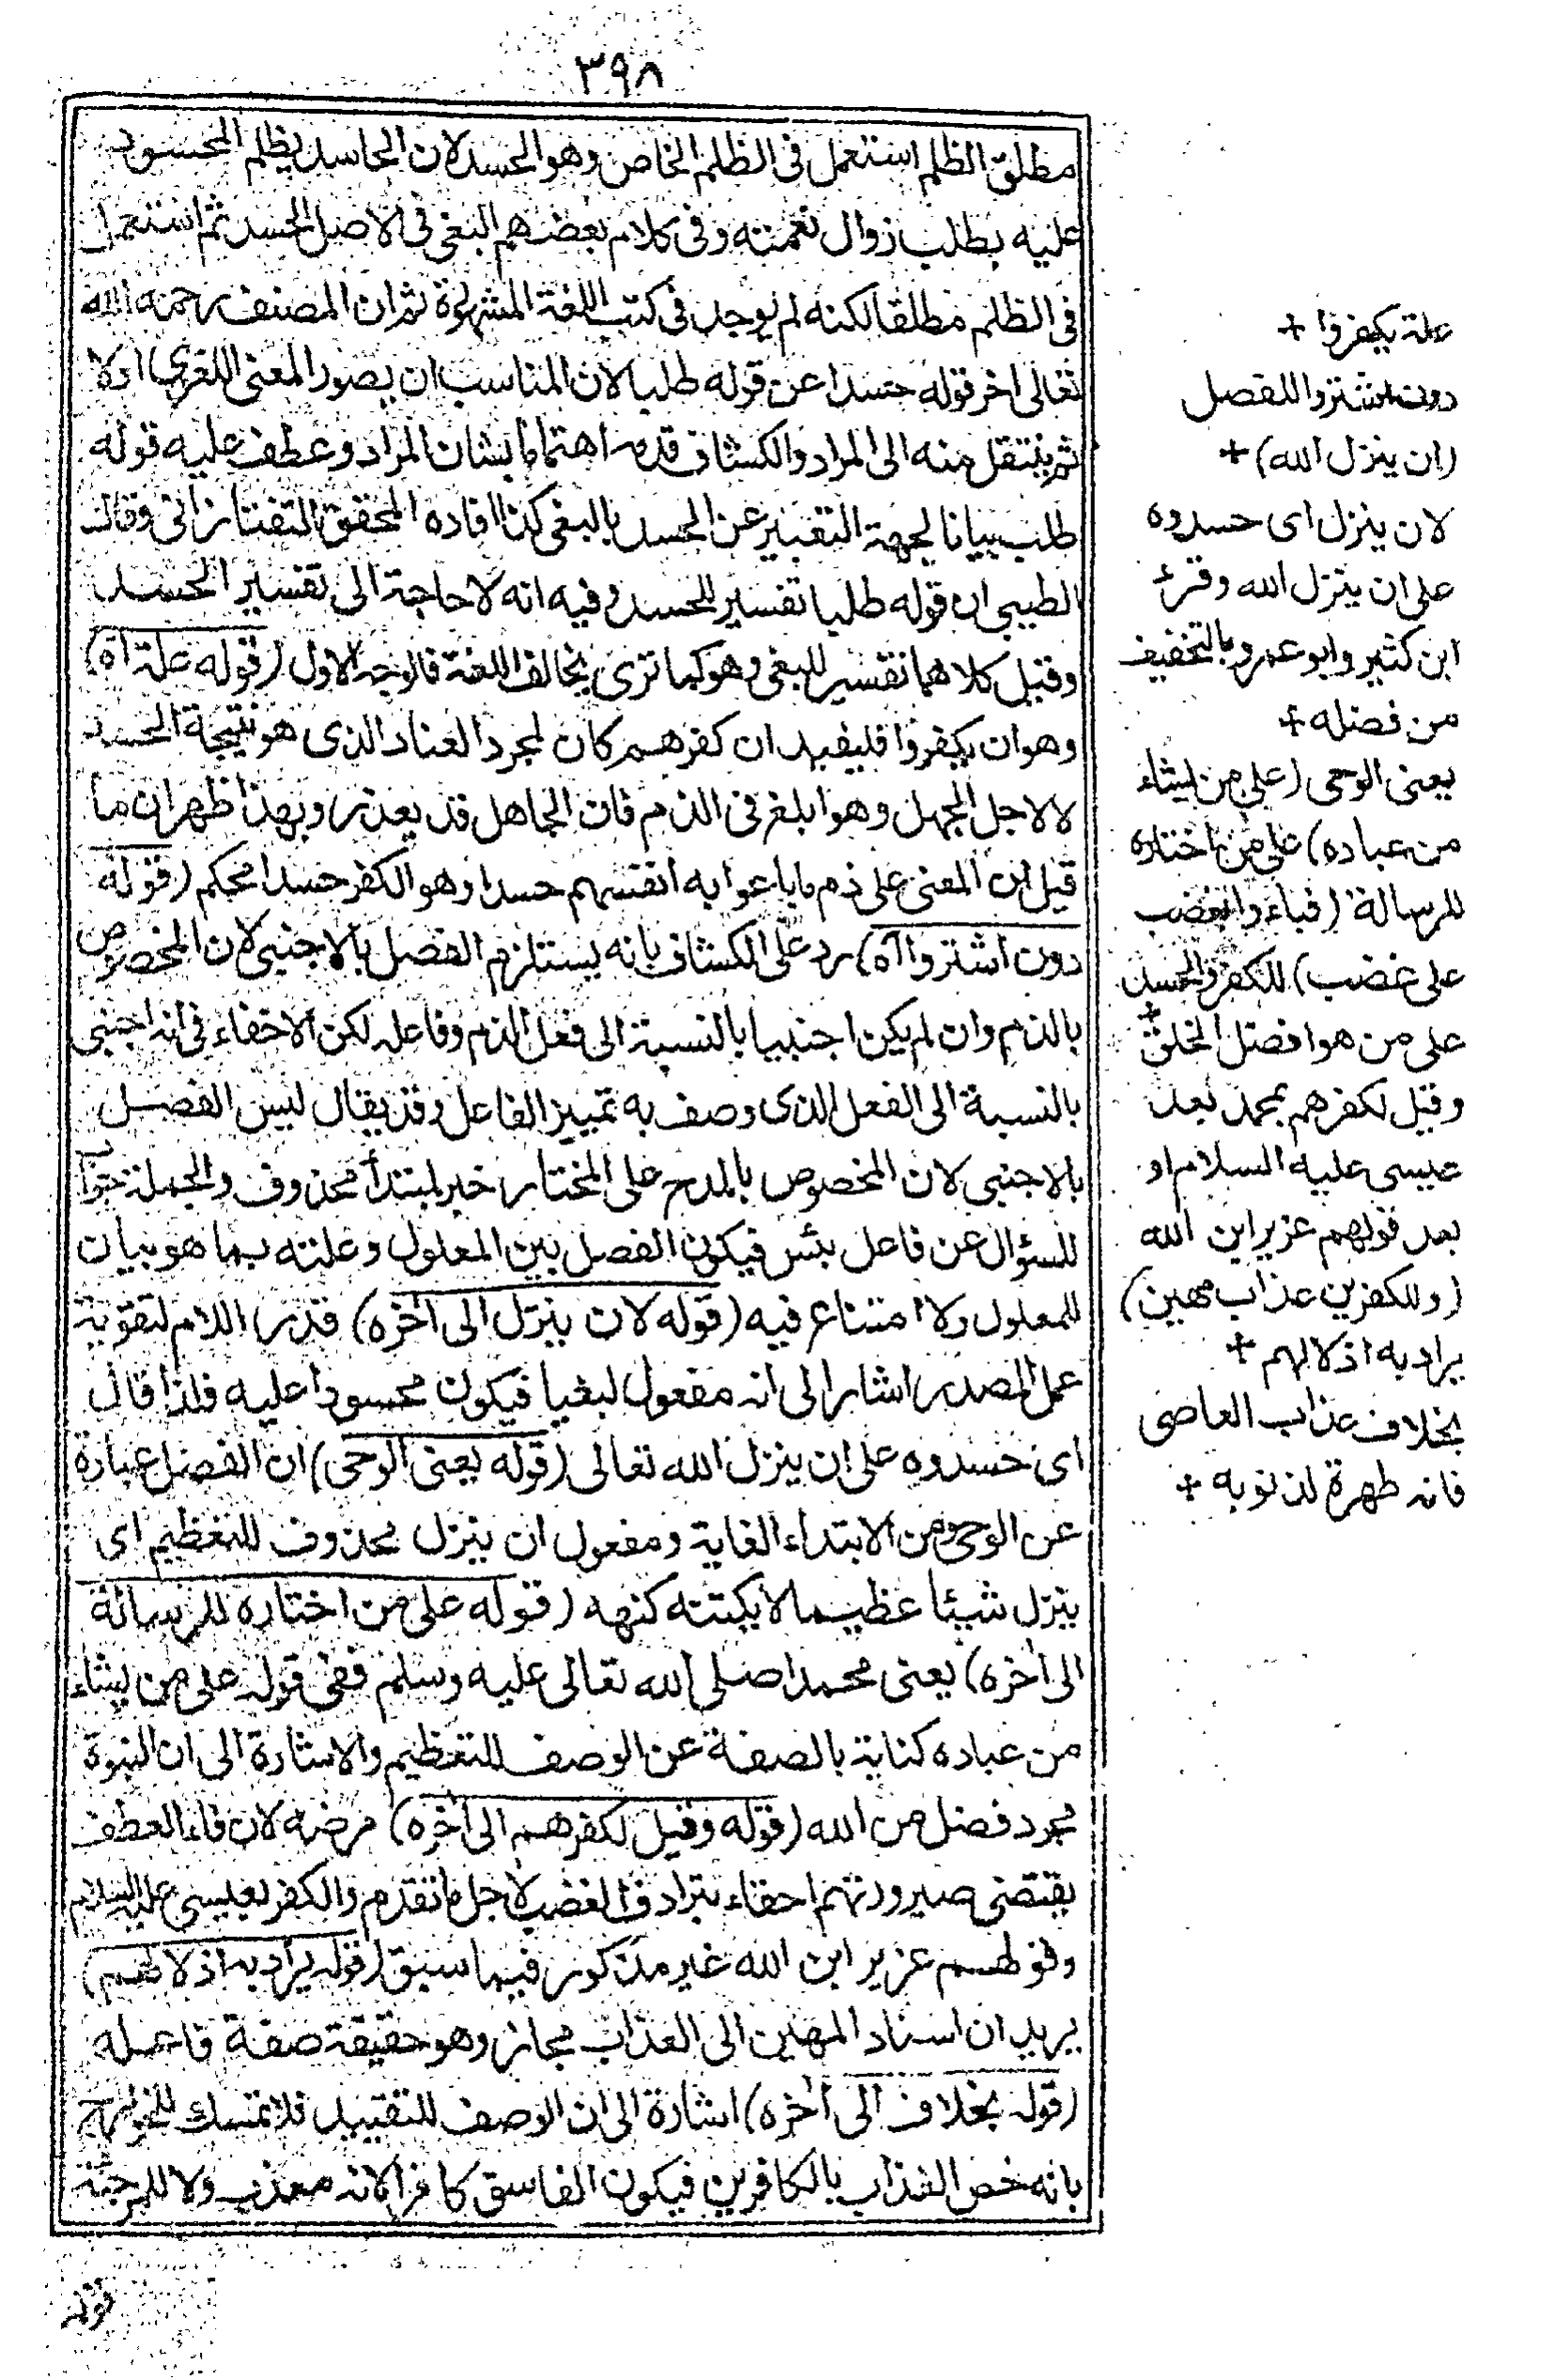 ٣٩٨
مطلق الظلم استعمل فى الظلم الخاص وهو الحسد لان الحاسد يظلم المحسود
عليه بطلب زوال نعمته وفى كلام بعضهم البغى فى الاصل الحسد ثم استعمل
فى الظلم مطلقا لكنه لم يوجد فى كتب اللغة المشهورة ثم ان المصنف رحمه الله
تعالى اخر قوله حسدا عن قوله طلبا لان المناسب ان يصور المعنى اللغوى اولا
ثم ينتقل منه الى المراد والكشاف قدمه اهتماما بشان المراد وعطف عليه قوله
طلب بيانا لجهة التعبير عن الحسد بالبغى كذا افاده المحقق التفتازانى وقال
الطيبى ان قوله طلبا تفسير للحسد وفيه انه لا حاجة الى تفسير الحسد
وقيل كلاهما تفسير للبغى وهو كما ترى يخالف اللغة فالوجه الاول (قوله علة اه)
وهو ان يكفروا فليفيد ان كفرهم كان لمجرد العناد الذى هو نتيجة الحسد
لا لاجل الجهل وهو ابلغ فى الذم فان الجاهل قد يعذر وبهذا ظهر ان ما
قيل ان المعنى على ذم ما باعوا به انفسهم حسدا وهو الكفر حسدا محكم (قوله
دون اشتروا اه) رد على الكشاف بانه يستلزم الفصل بالاجنبى لان المخصوص
بالذم وان لم يكن اجنبيا بالنسبة الى فعل الذم وفاعله لكن لا خفاء فى انه اجنبى
بالنسبة الى الفعل الذى وصف به تمييز الفاعل وقد يقال ليس الفصل
بالاجنبى لان المخصوص بالمدح على المختار خبر لمبتدأ محذوف والجملة جواب
للسؤال عن فاعل بئس فيكون الفصل بين المعلول وعلته بما هو بيان
للمعلول ولا امتناع فيه (قوله لان ينزل الى اخره) قدر اللام لتقوية
عمل المصدر اشارا الى انه مفعول لبغيا فيكون محسودا عليه فلذا قال
اى حسدوه على ان ينزل الله تعالى (قوله يعنى الوحى) ان الفضل عبارة
عن الوحى ومن لابتداء الغاية ومفعول ان ينزل محذوف للتعظيم اى
ينزل شيئا عظيما لا يكتنه كنهه (قوله على من اختاره للرسالة
الى اخره) يعنى محمدا صلى الله تعالى عليه وسلم ففى قوله على من يشاء
من عباده كناية بالصفة عن الوصف للتعظيم والاشارة الى ان النبوة
مجرد فضل من الله (قوله وقيل لكفرهم الى اخره) مرضه لان فاء العطف
يقتضى صيرورتهم احقاء بترادف الغضب لاجل ما تقدم والكفر بعيسى عليه السلام
وقولهم عزير ابن الله غير مذكور فيما سبق (قوله يراد به اذلالهم)
يريد ان اسناد المهين الى العذاب مجاز وهو حقيقة صفة فاعله
(قوله بخلاف الى اخره) اشارة الى ان الوصف للتقييد فلا تمسك للخوارج
بانه خص العذاب بالكافرين فيكون الفاسق كافرا لانه معذب ولا للمرجئة
قوله
علة يكفروا +
دون اشتروا للفصل
(ان ينزل الله) +
لان ينزل اى حسدوه
على ان ينزل الله وقرء
ابن كثير وابو عمرو بالتخفيف
من فضله +
يعنى الوحى (على من يشاء
من عباده) على من اختاره
للرسالة (فباءو بغضب
على غضب) للكفر والحسد
على من هو افضل الخلق +
وقيل لكفرهم بمحمد بعد
عيسى عليه السلام او
بعد قولهم عزير ابن الله
(وللكفرين عذاب مهين)
يراد به اذلالهم +
بخلاف عذاب العاصى
فانه طهرة لذنوبه +